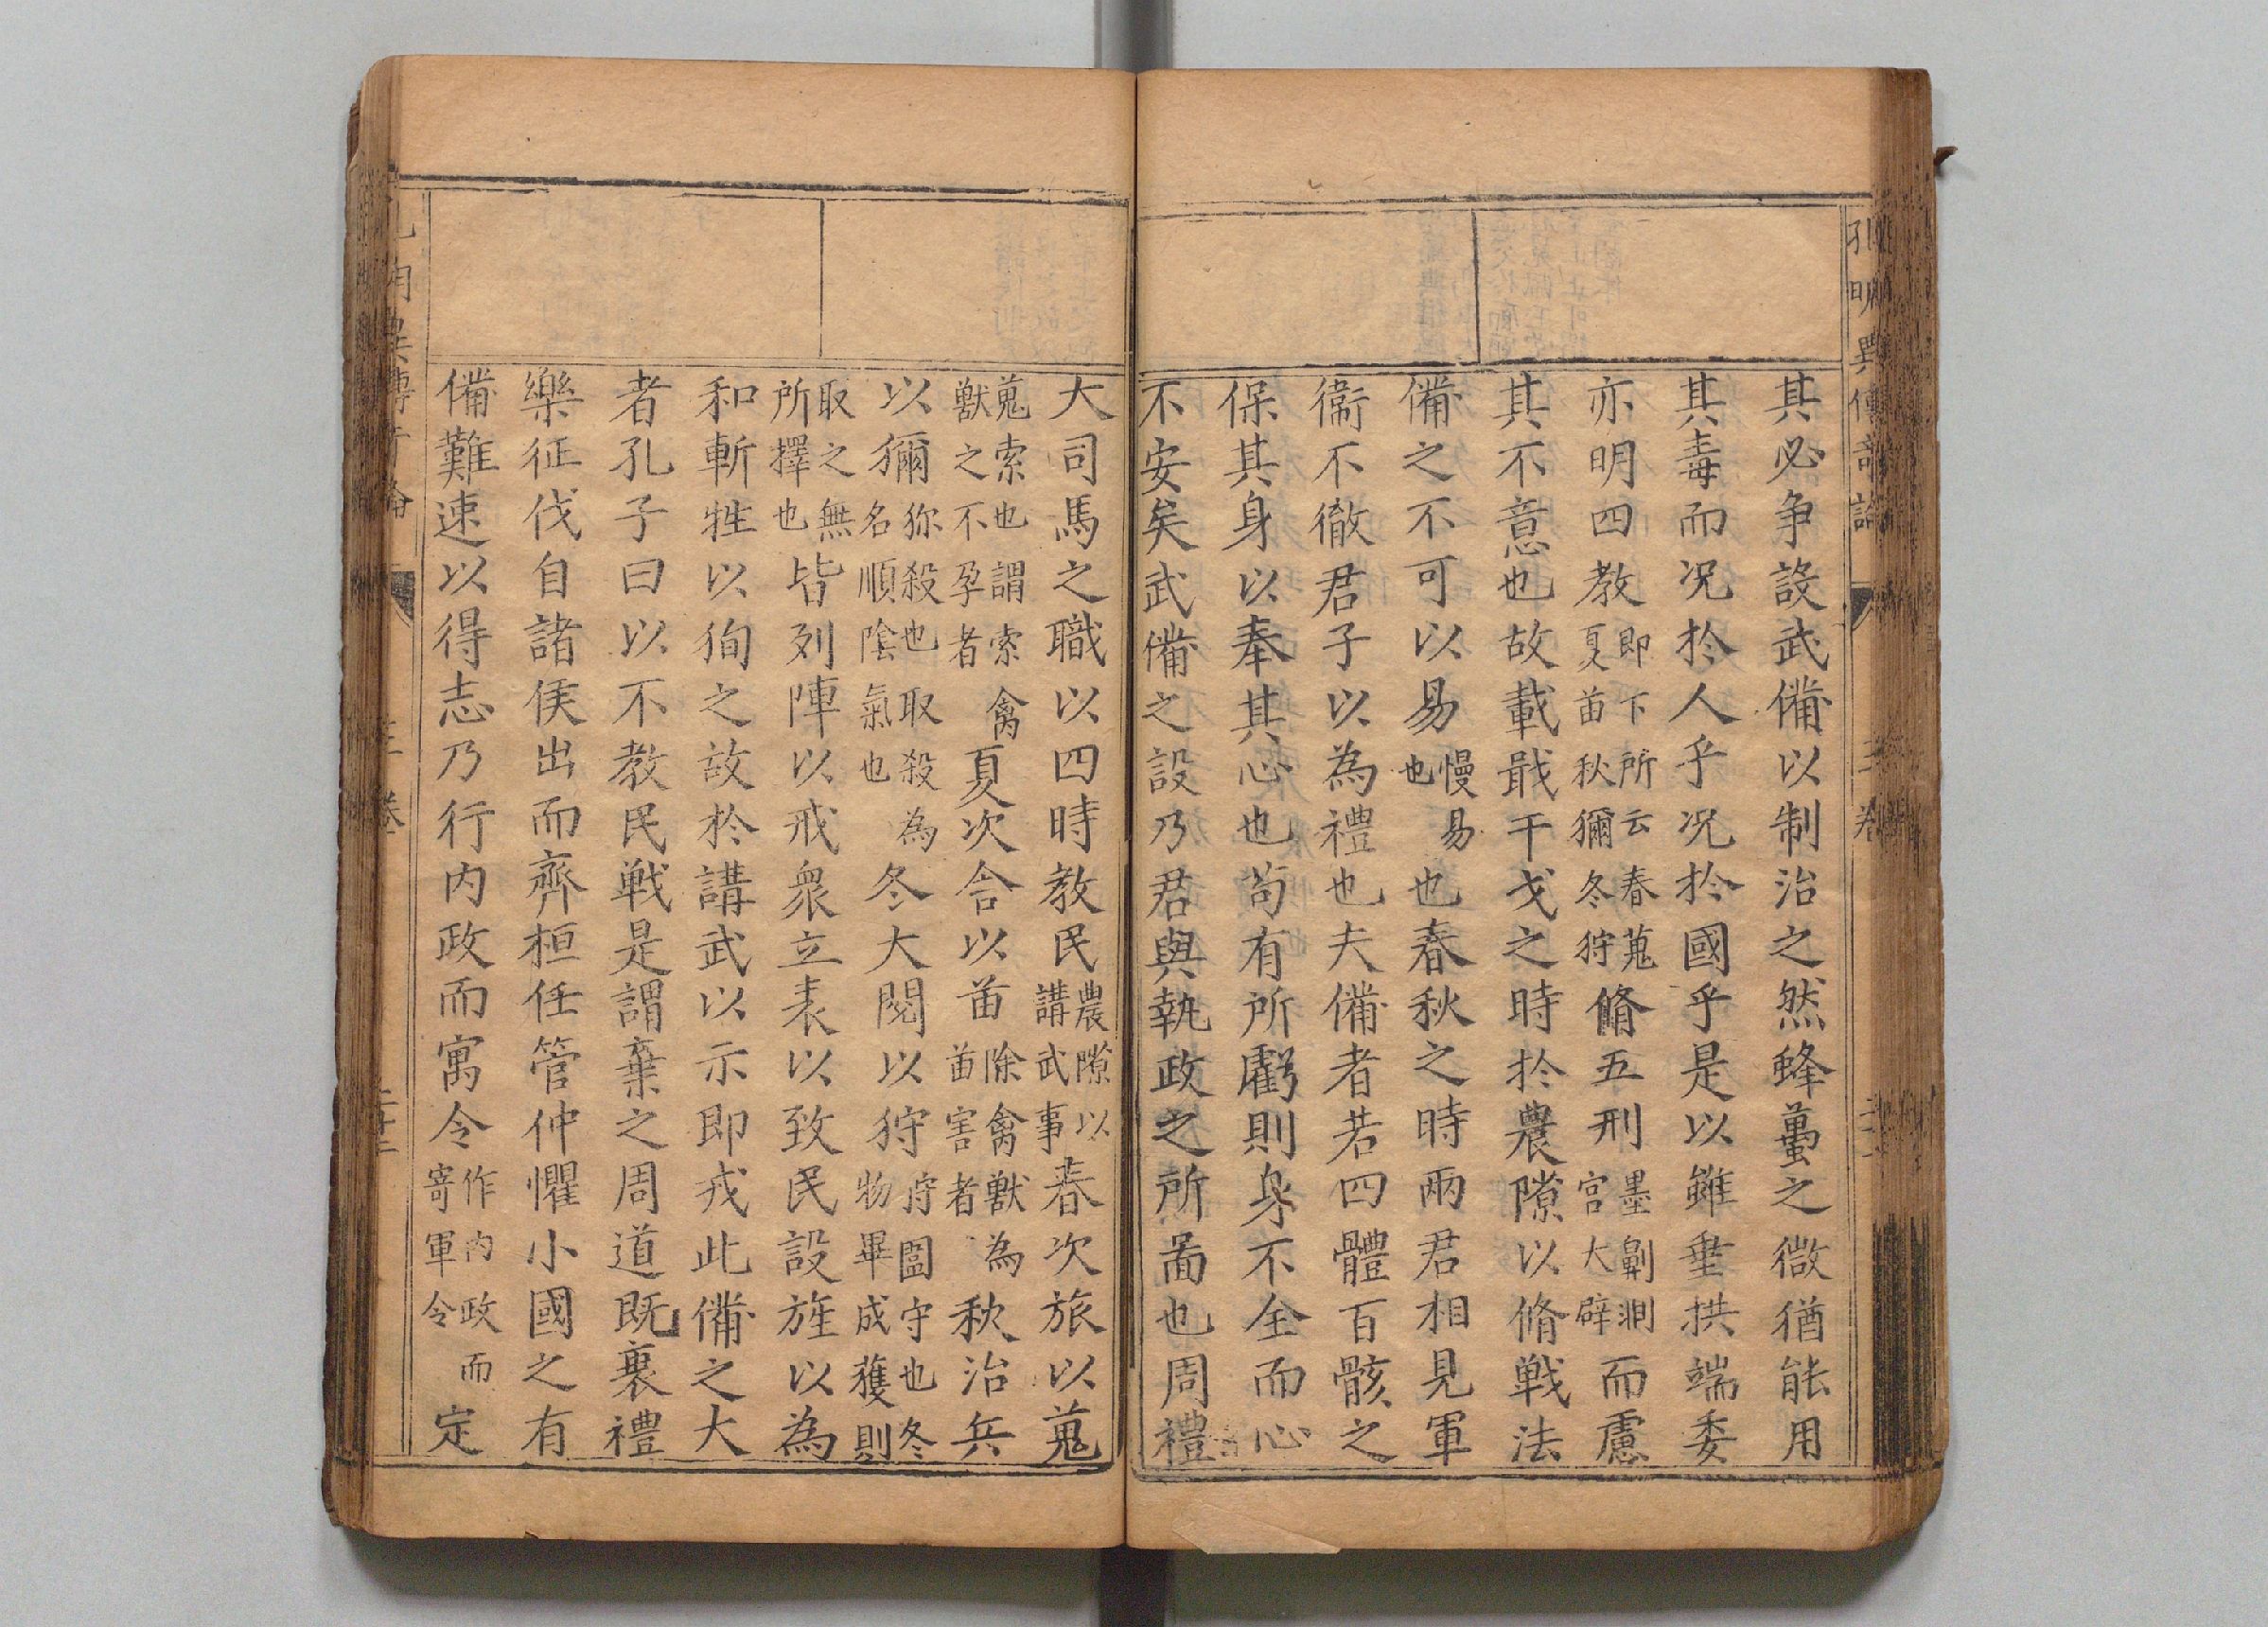 其必争設武備以制治之然蜂蠆之微猶能用
其毒而况於人乎况於國乎是以雖垂拱端委
亦明四教即下所云春蒐夏苗秋獮冬狩脩五刑墨劓剕宮大辟而慮
其不意也故載戢干戈之時於農隙以脩戰法
備之不可以易慢易也也春秋之時兩君相見軍
衞不徹君子以為禮也夫備者若四體百骸之
保其身以奉其心也苟有所虧則身不全而心
不安矣武備之設乃君與執政之所啚也周禮
大司馬之職以四時教民農隙以講武事春次旅以蒐
蒐索也謂索禽獸之不孕者夏次舍以苗除禽獸為苗害者秋治兵
以獮狝殺也取殺為名順陰氣也冬大閱以狩狩圍守也冬物畢成獲則
取之無所擇也皆列陣以戒衆立表以致民設旌以為
和斬牲以狥之故於講武以示即戎此備之大
者孔子曰以不教民戰是謂棄之周道既衰禮
樂征伐自諸侯出而齊桓任管仲懼小國之有
備難速以得志乃行内政而寓令作内政而寄軍令定